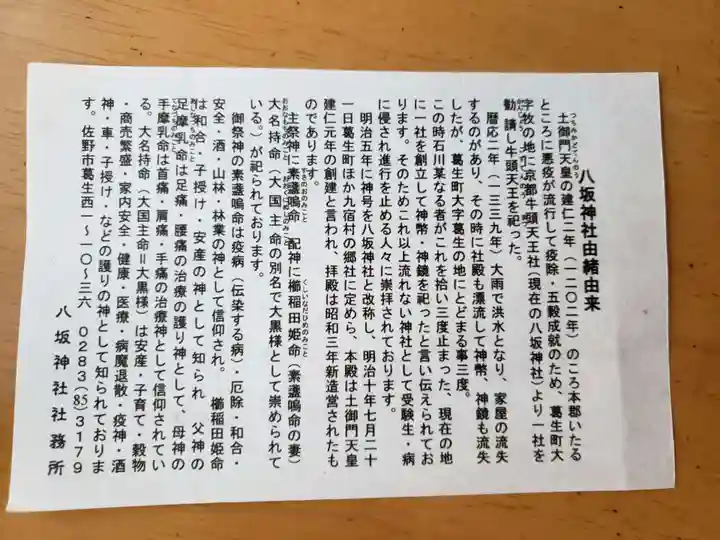 八坂神社由緒由来
つちみかどてんのう
土御門天皇の建仁二年（一二〇二年）のころ本郡いたる
ところに悪疫が流行して疫除・五穀成就のため、葛生町大
字牧の地に京都牛頭天王社（現在の八坂神社）より一社を
かんじょう
勧請し牛頭天王を祀った。
暦応二年（一三三九年）大雨で洪水となり、家屋の流失
するのがあり、その時に社殿も漂流して神幣、神鏡も流失
したが、葛生町大字葛生の地にとどまる事三度。
この時石川某なる者がこれを拾い三度止まった、現在の地
に一社を創立して神幣・神鏡を祀ったと言い伝えられてお
ります。そのためこれ以上流れない神社として受験生・病
に侵され進行を止める人々に崇拝されております。
明治五年に神号を八坂神社と改称し、明治十年七月二十
一日葛生町ほか九宿村の郷社に定めら、本殿は土御門天皇
建仁元年の創建と言われ、拝殿は昭和三年新造営されたも
のであります。
すさのおのみこと くしいなだひめのみこと
主祭神に素盞嗚命 配神に櫛稲田姫命（素盞嗚命の妻）
おおなもちのみこと おおくにぬしのみこと
大名持命（大国主命の別名で大黒様として崇められて
いる。）が祀られております。
御祭神の素盞嗚命は疫病（伝染する病）・厄除・和合・
安全・酒・山林・林業の神として信仰され。 櫛稲田姫命
は和合・子授け・安産の神として知られ 父神の
あしなづちのみこと
足摩乳命は足痛・腰痛の治療の護り神として、母神の
てなづちのみこと
手摩乳命は首痛・肩痛・手痛の治療神として信仰されてい
る。大名持命（大国主命＝大黒様）は安産・子育て・穀物
・商売繁盛・家内安全・健康・医療・病魔退散・疫神・酒
神・車・子授け、などの護りの神として知られておりま
す。佐野市葛生西一ー一〇ー三六 0283(85)3179
八坂神社社務所